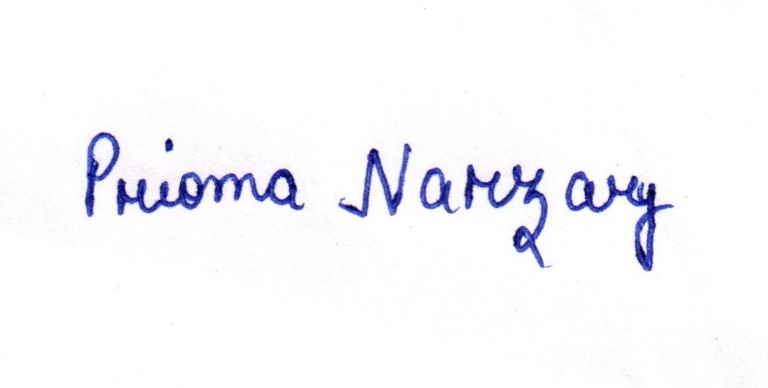 Prioma Narzary